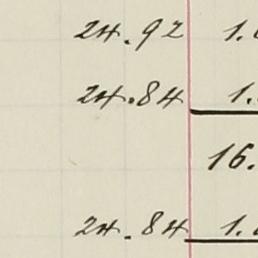 24.92 1.
24.84 1.
16.
24.84 1.